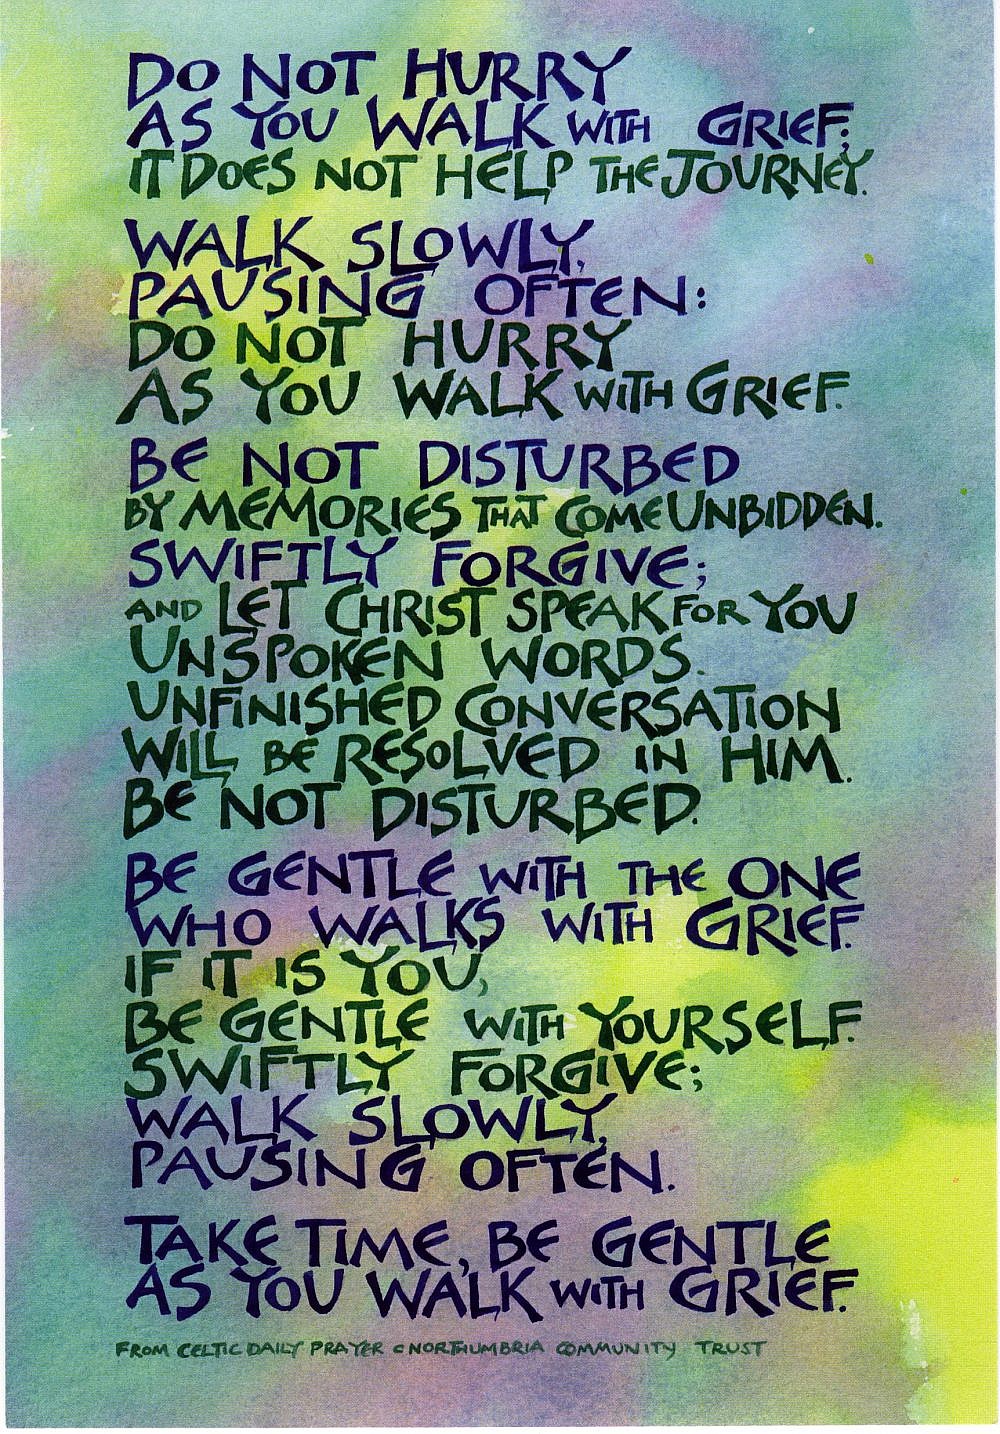 DO NOT HURRY
AS YOU WALK WITH GRIEF;
IT DOES NOT HELP THE JOURNEY.
WALK SLOWLY,
PAUSING OFTEN:
DO NOT HURRY
AS YOU WALK WITH GRIEF.
BE NOT DISTURBED
BY MEMORIES THAT COME UNBIDDEN.
SWIFTLY FORGIVE;
AND LET CHRIST SPEAK FOR YOU
UNSPOKEN WORDS.
UNFINISHED CONVERSATION
WILL BE RESOLVED IN HIM.
BE NOT DISTURBED.
BE GENTLE WITH THE ONE
WHO WALKS WITH GRIEF.
IF IT IS YOU,
BE GENTLE WITH YOURSELF.
SWIFTLY FORGIVE;
WALK SLOWLY,
PAUSING OFTEN.
TAKE TIME, BE GENTLE
AS YOU WALK WITH GRIEF.
FROM CELTIC DAILY PRAYER © NORTHUMBRIA COMMUNITY TRUST